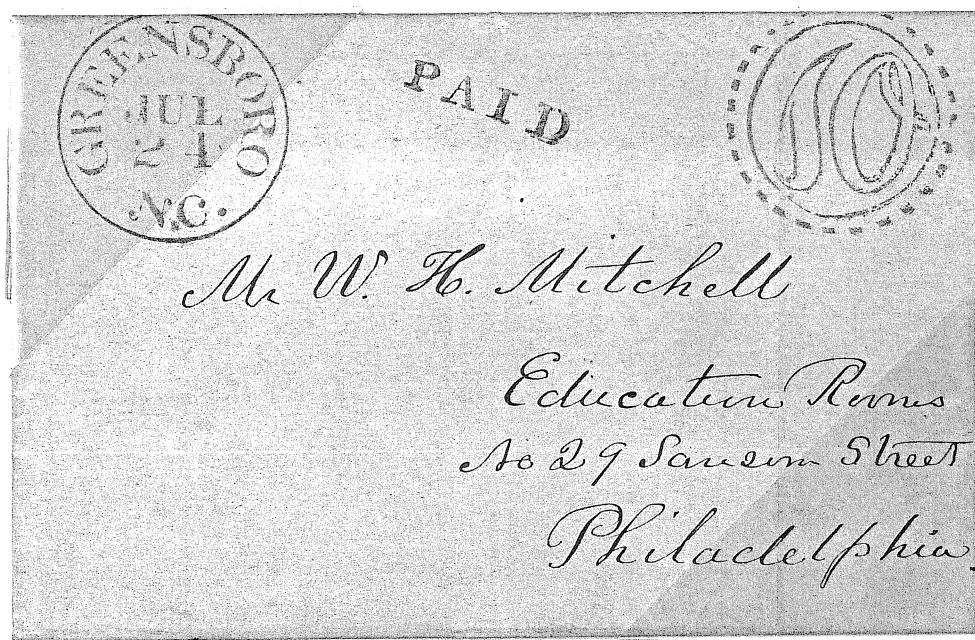 GREENSBORO
JUL
24
N.C.
PAID
10
Mr W. H. Mitchell
Education Rooms
No 29 Sansom Street
Philadelphia